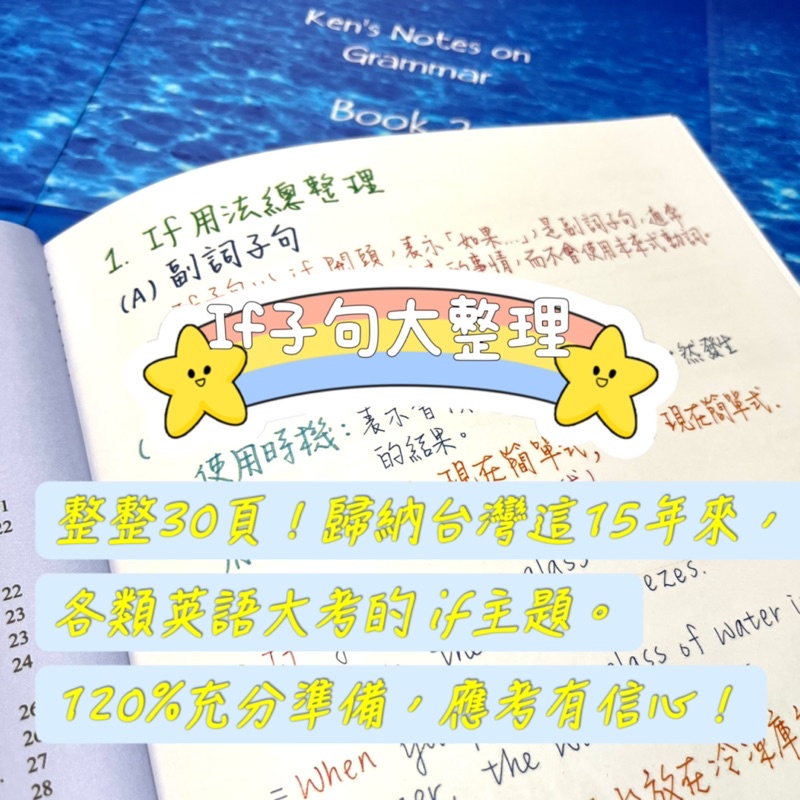 Ken's Notes on
Grammar
Book 2
1. If 用法總整理
(A) 副詞子句
if 開頭，表示「如果...」，是副詞子句，通常
的事情，而不會使用未來式動詞。
If子句大整理
然發生
使用時機：表示
的結果。
現在簡單式，
現在簡單式．
整整30頁！歸納台灣這15年來，
glass
ezes.
各類英語大考的 if主題。
the
glass of water i
120%充分準備，應考有信心！
= When
the
放在冷凍庫
22
22
23
23
24
26
27
28